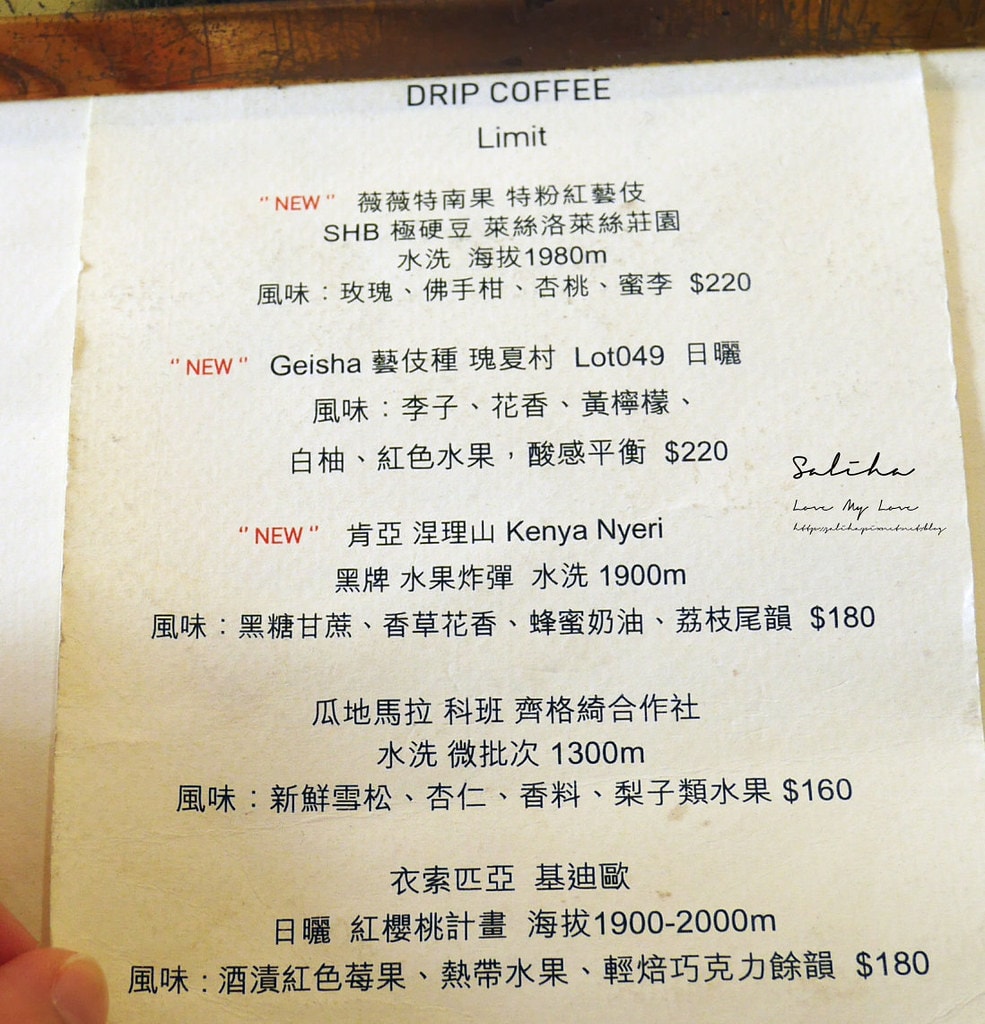 DRIP COFFEE
Limit
“NEW” 薇薇特南果 特粉紅藝伎
SHB 極硬豆 萊絲洛萊絲莊園
水洗 海拔1980m
風味：玫瑰、佛手柑、杏桃、蜜李 $220
“NEW” Geisha 藝伎種 瑰夏村 Lot049 日曬
風味：李子、花香、黃檸檬、
白柚、紅色水果，酸感平衡 $220
Saliha
Love My Love
“NEW” 肯亞 涅理山 Kenya Nyeri
黑牌 水果炸彈 水洗 1900m
風味：黑糖甘蔗、香草花香、蜂蜜奶油、荔枝尾韻 $180
瓜地馬拉 科班 齊格綺合作社
水洗 微批次 1300m
風味：新鮮雪松、杏仁、香料、梨子類水果 $160
衣索匹亞 基迪歐
日曬 紅櫻桃計畫 海拔1900-2000m
風味：酒漬紅色莓果、熱帶水果、輕焙巧克力餘韻 $180